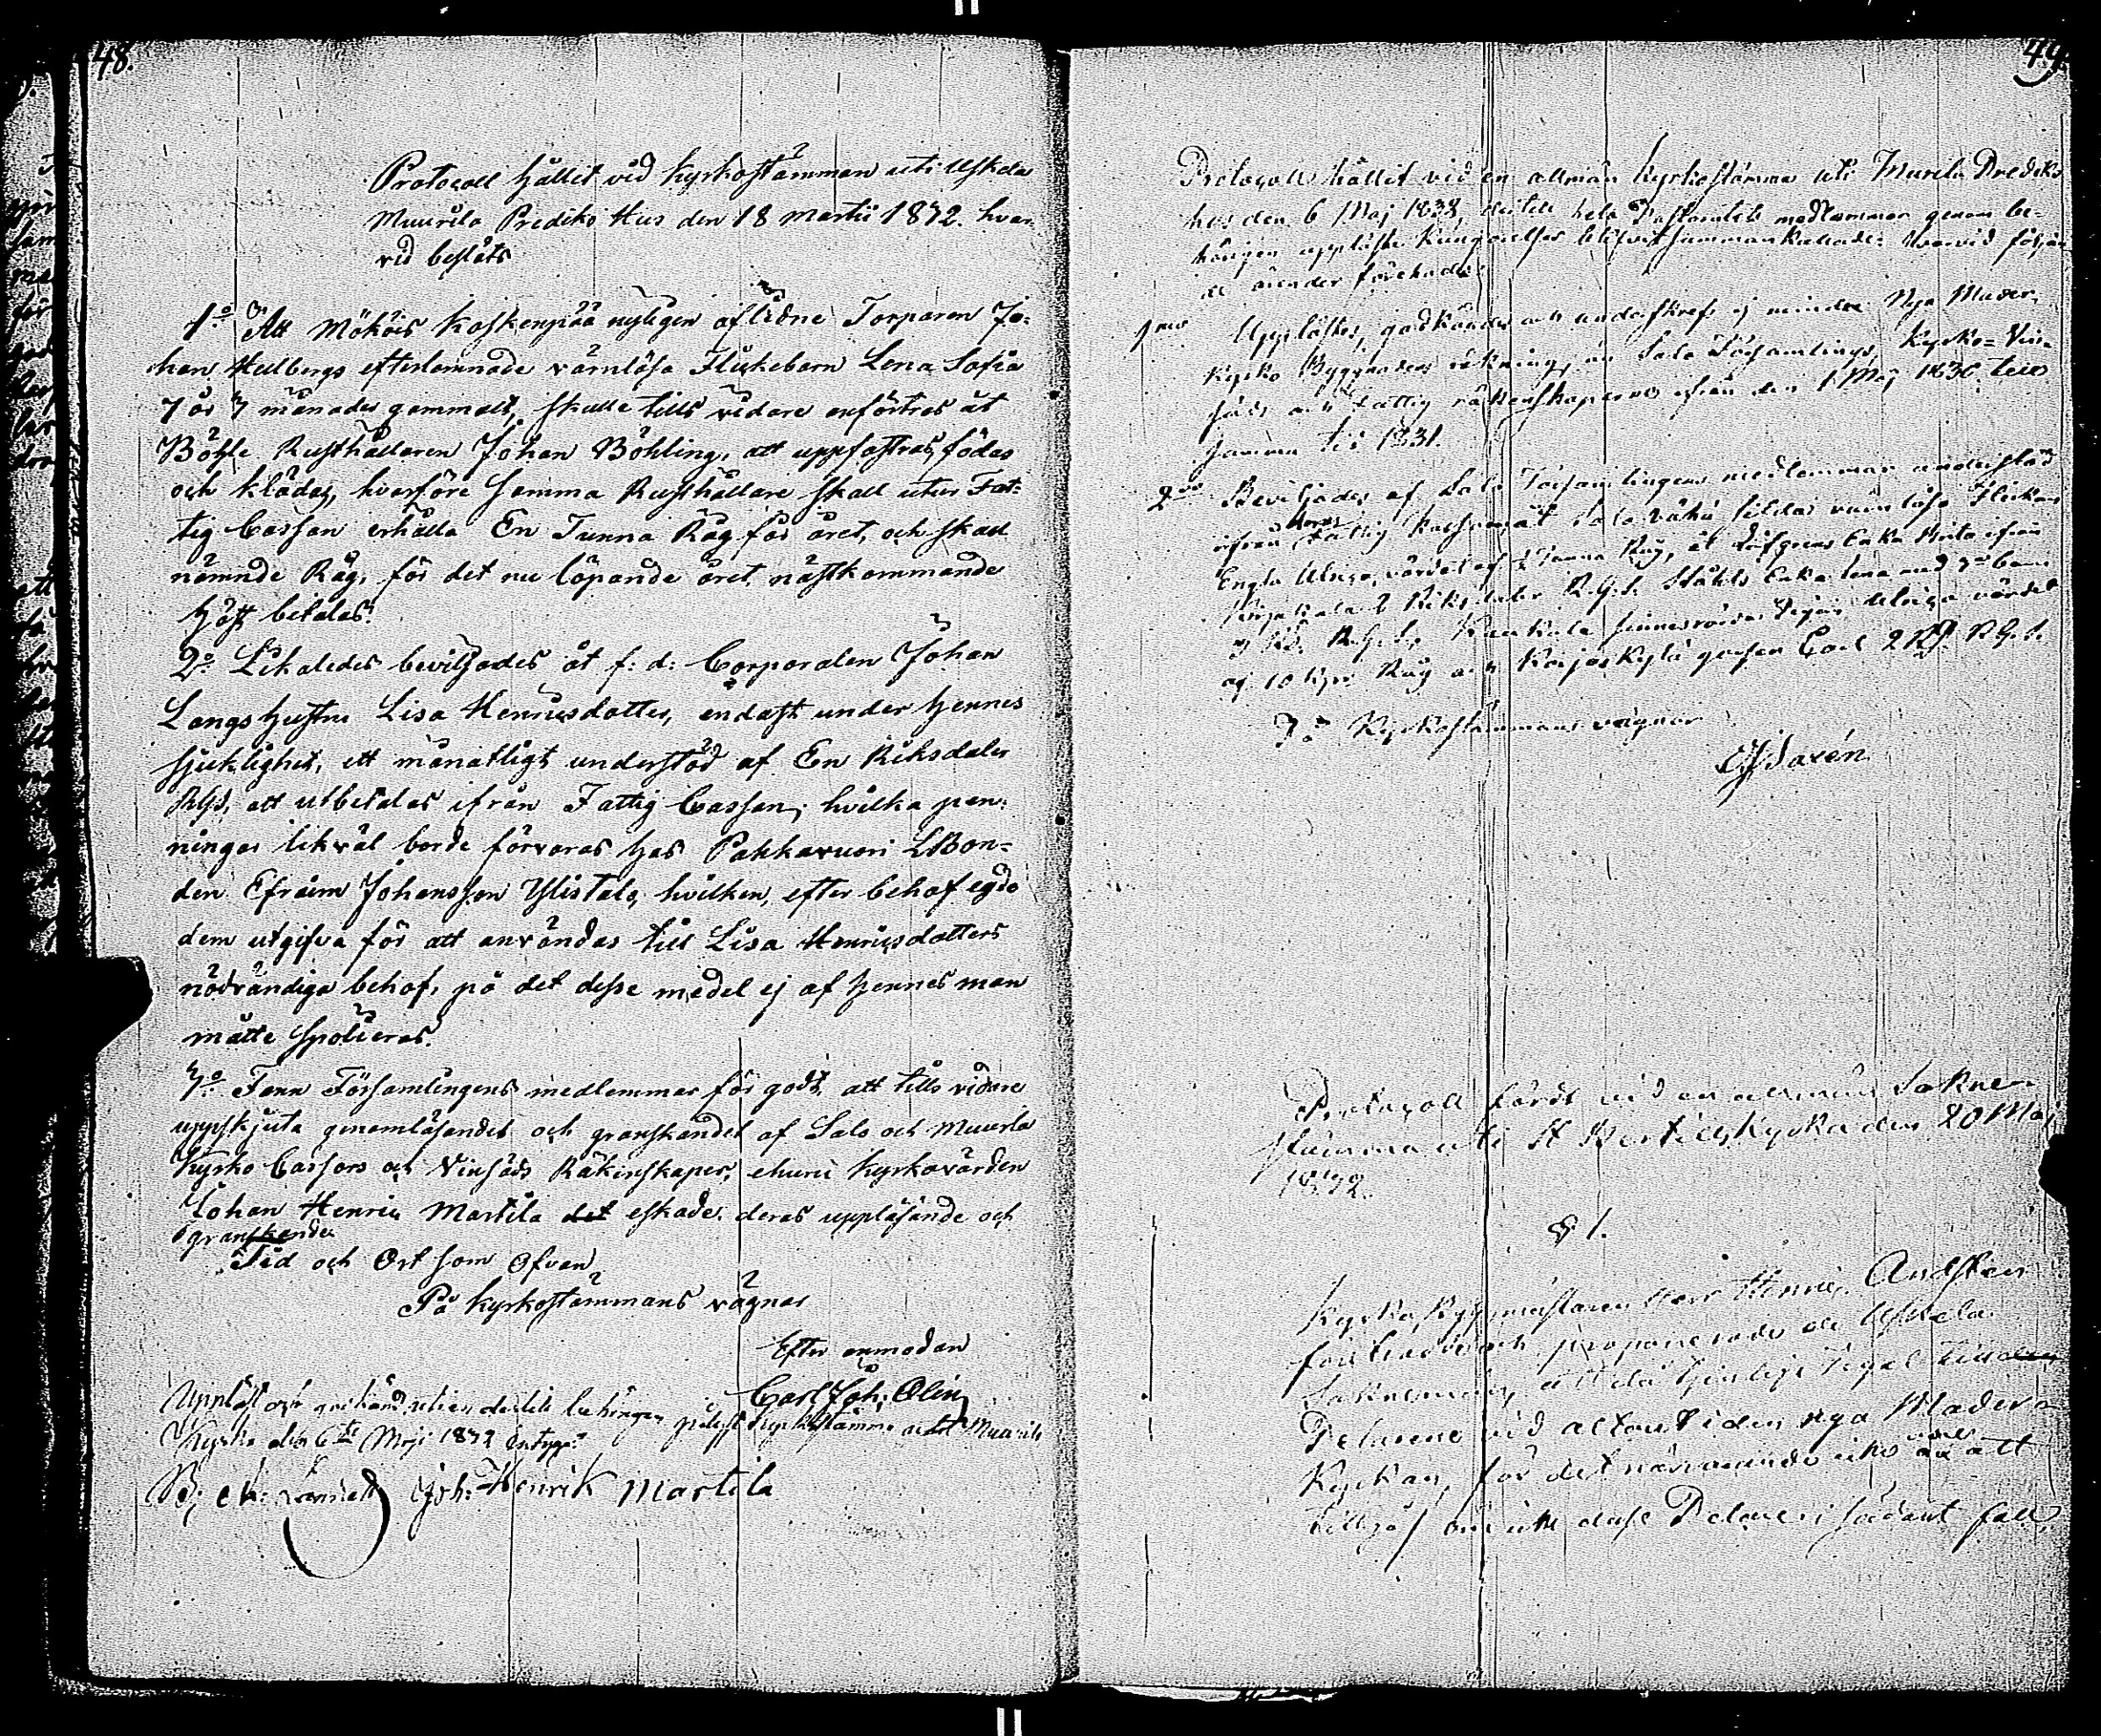 48.
Protocoll hållit vid Kyrkostämman uti Uskela
Muurila Prediko Hus den 18 Martii 1832. hvar
vid beslöts
1o Att Mököis Koskenpää nyligen aflidne Torparen Jo-
han Hellbergs efterlemnade värnlösa Flickebarn Lena Sofia
7 år 7 månader gammalt, skulle tills vidare anförtros åt
Böhle Rusthållaren Johan Böhling, att uppfostras, födas
och klädas, hvarföre samma Rusthållare skall utur Fat-
tig Cassan erhålla En Tunna Råg för året, och skall
nämnde Råg, för det nu löpande året nästkommande
höst betalas.
2o Likaledes beviljades åt f: d: Corporalen Johan
Längs hustru Lisa Henricsdotter, endast under hennes
sjuklighet, ett månatligt understöd af En Riksdaler
RGS, att utbetalas ifrån Fattig Cassan; hvilka pen-
ningar likväl borde förvaras hos Pakkavuori LBon-
den Efraim Johansson Ylistalo, hvilken, efter behof egde
dem utgifva för att användas till Lisa Henricsdotters
nödvändiga behof, på det desse medel ej af hennes man
måtte spolieras.
3o Fann Församlingens medlemmar för godt, att tills vidare
uppskjuta genomläsandet och granskandet af Salo och Muurla
Kyrko Cassors och Vinsäds Räkenskaper, ehuru Kyrkovärden
Johan Henric Martila det eskade deras uppläsande och
granskande
Tid och Ort som Ofvan
På Kyrkostämmans vägnar
Efter anmodan
Carl Joh: Olin
Uppläst och godkänd, uti en dertill behörigen pålyst Kyrkostämma uti Muurila
Kyrka den 6te Maji 1832 betyga
Joh: Henrik Martila
49.
Protocoll hållit vid en allmän Kyrkostämma uti Murila Prediko
hus den 6 Maj 1832, dertill hela Pastoratets medlemmar genom be-
hörigen uppläste Kungörelser blifvit sammankallade: hvarvid följan
de ärender förehades:
1mo Upplästes, godkändes och underskrefs ej mindre Nya Mader-
Kyrko Byggnadens räkning, än Salo Församlings Kyrko- Vin-
säds och Fattig räkenskaperne ifrån den 1 Maj 1830 till
samma tid 1831.
2do Beviljades af Salo Församlings medlemmar understöd
ifrån deras Fattig Kassa, åt Salo
Engla Ulrica, värdet af 1 Tunna Råg, åt Enka Brita ifrån
2 Riksdaler R.G.S. Enka Lena med 3ne barn
3 Rd. R.G.S. Kaukola sinnesrörda Pigan Ulrica värdet
af 10 kpr Råg och Karjaskylä gossen Carl 2 Rd. R.G.S.
På Kyrkostämmans vägnar
Protocoll fördt vid en allmän Sokne-
stämma uti St Bertils Kyrka den 20 Maj
1832.
§ 1.
Kyrko Byggmästaren Herr Henric
företrädde och proponerade de Uskela
Soknemän, att då Tegel till
Pelarene vid altaret i den nya Mader-
Kyrkan, för det närvarande icke vore att
tillgå, om icke desse Pelare i sådant fall